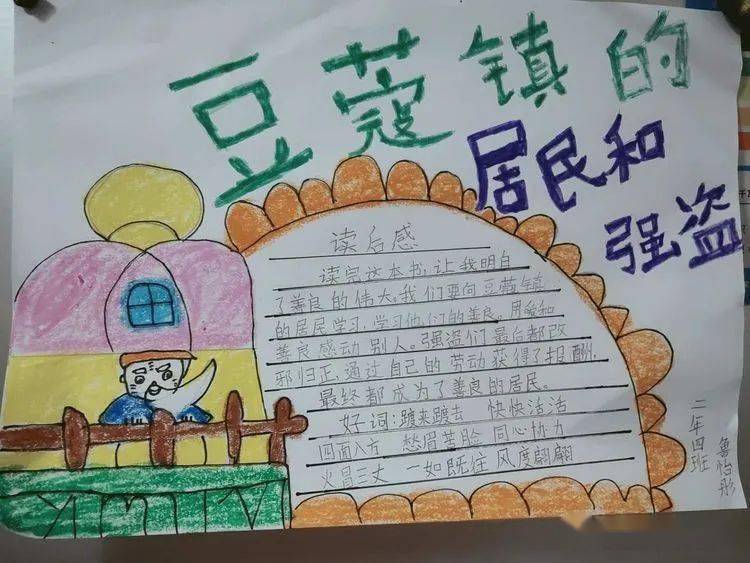 豆蔻镇的
居民和
强盗
读后感
读完这本书,让我明白
了善良的伟大,我们要向豆蔻镇
的居民学习,学习他们的善良。用爱和
善良感动别人。强盗们最后都改
邪归正,通过自己的劳动获得了报酬,
最终都成为了善良的居民。
好词:踱来踱去 快快活活
四面八方 愁眉苦脸 同心协力
火冒三丈 一如既往 风度翩翩
二年四班
鲁怡彤